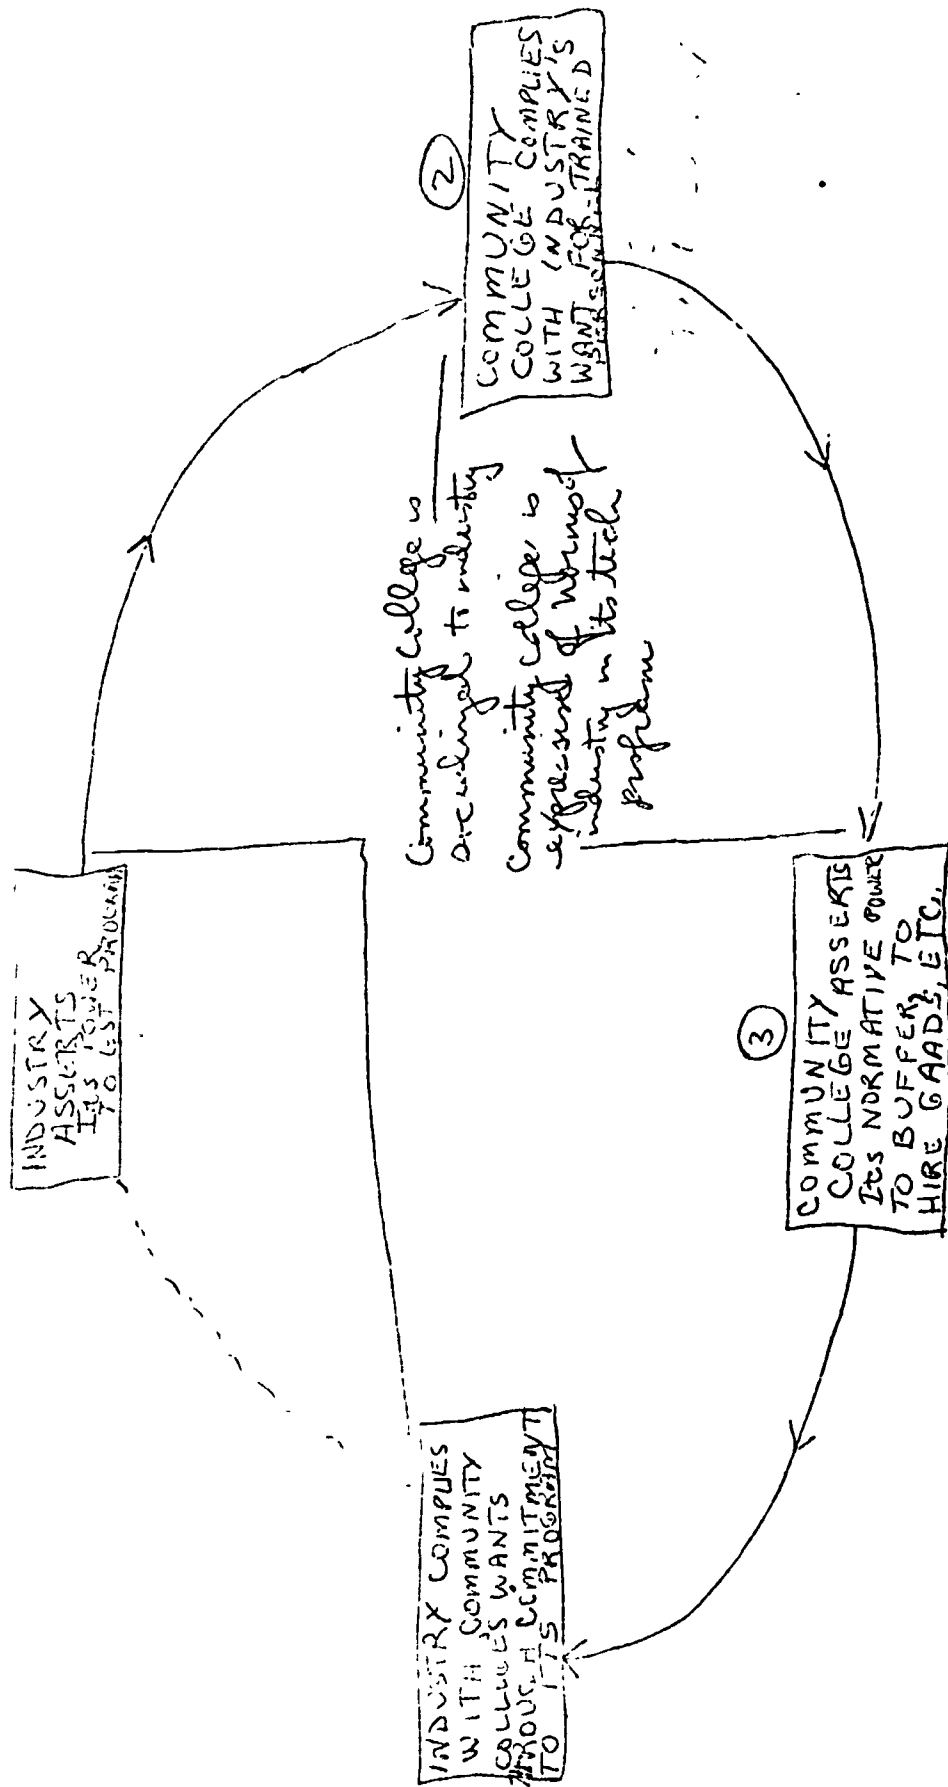 INDUSTRY
ASSERTS
Its POWER
TO EST PROGRAM
②
COMMUNITY
COLLEGE COMPLIES
WITH INDUSTRY'S
WANT FOR TRAINED
Community College is
to industry
Community College is
of Norms of
industry in its tech
program
③
COMMUNITY
COLLEGE ASSERTS
Its NORMATIVE POWER
TO BUFFER, TO
HIRE GAADS, ETC.
INDUSTRY COMPLIES
WITH COMMUNITY
COLLEGES WANTS
THROUGH COMMITMENT
TO ITS PROGRAM